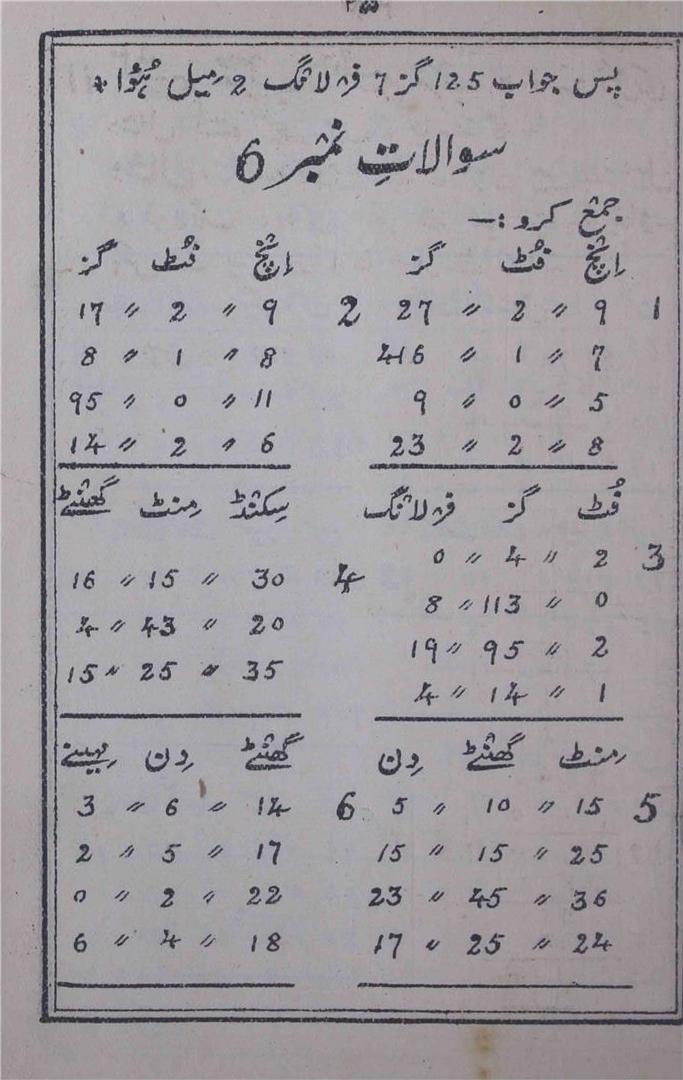 پس جواب 125 گز 7 فرلانگ 2 میل ہُوا *
سوالاتِ نمبر 6
جمع کرو :—
اِنچ فُٹ گز
1 9 〃 2 〃 27
7 〃 1 〃 416
5 〃 0 〃 9
8 〃 2 〃 23
اِنچ فُٹ گز
2 9 〃 2 〃 17
8 〃 1 〃 8
11 〃 0 〃 95
6 〃 2 〃 14
فُٹ گز فرلانگ
3 2 〃 4 〃 0
0 〃 113 〃 8
2 〃 95 〃 19
1 〃 14 〃 4
سکنڈ منٹ گھنٹے
4 30 〃 15 〃 16
20 〃 43 〃 4
35 〃 25 〃 15
منٹ گھنٹے دِن
5 15 〃 10 〃 5
25 〃 15 〃 15
36 〃 45 〃 23
24 〃 25 〃 17
گھنٹے دِن مہینے
6 14 〃 6 〃 3
17 〃 5 〃 2
22 〃 2 〃 0
18 〃 4 〃 6